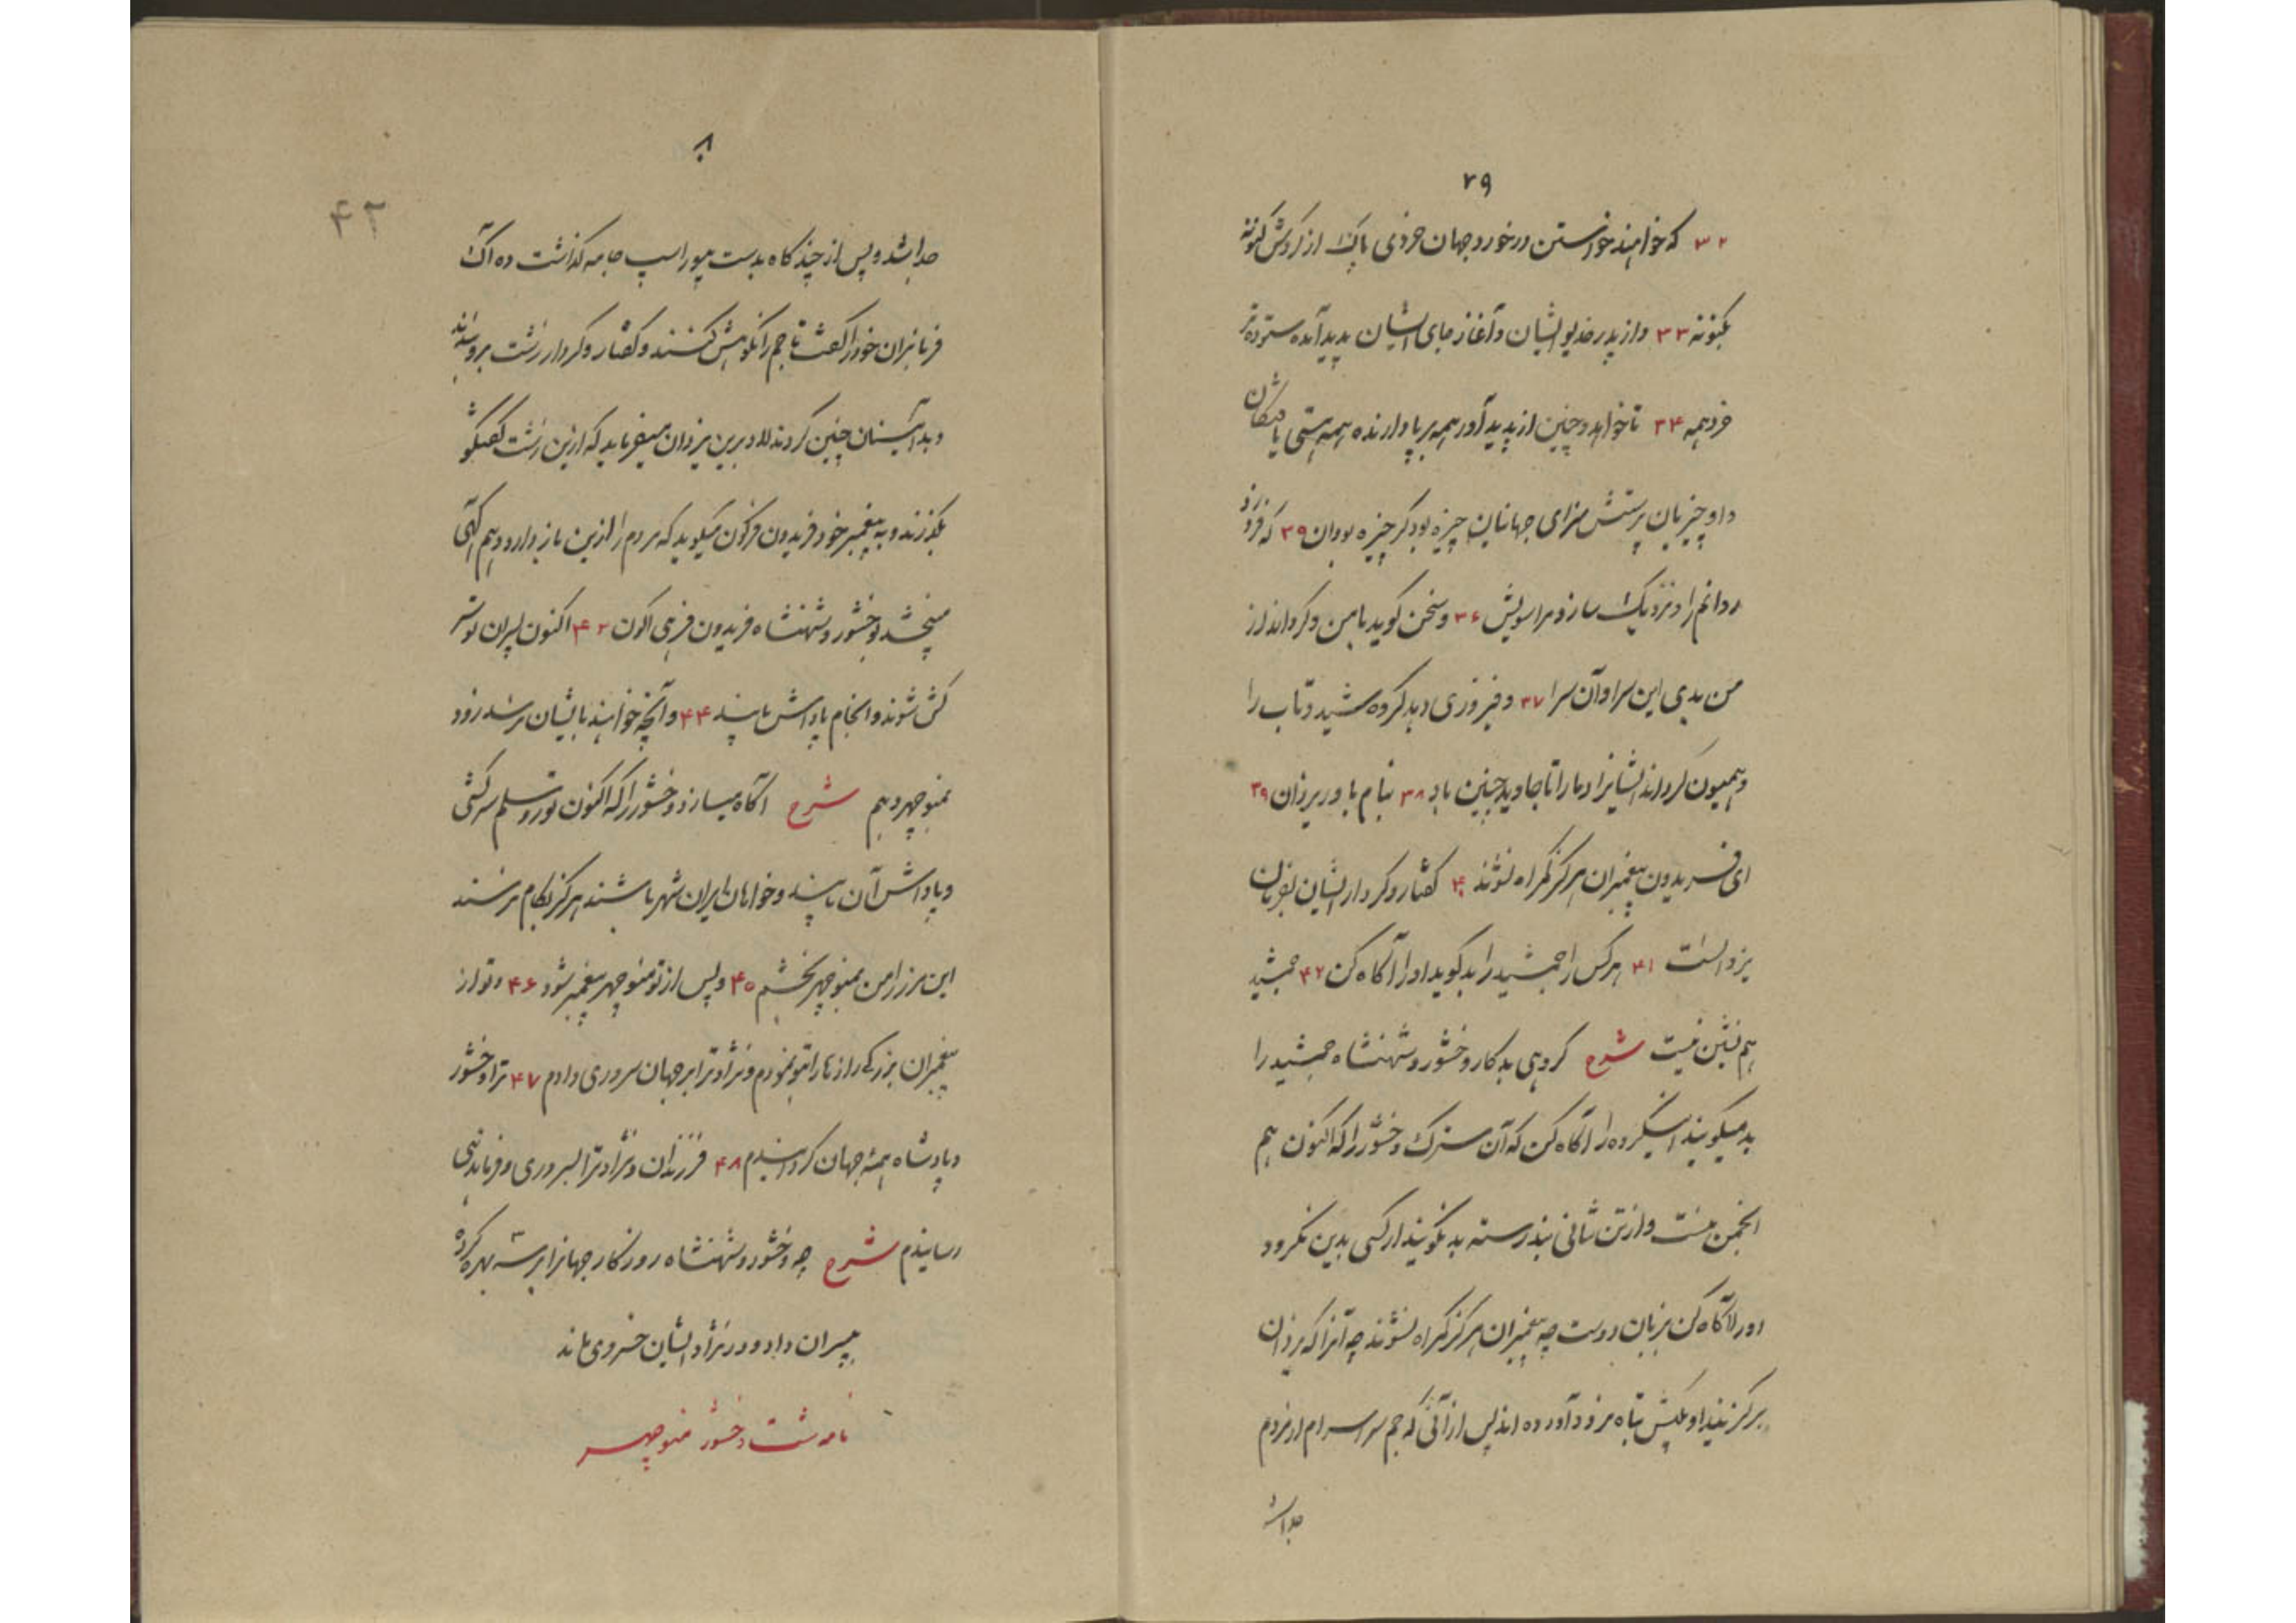 ۲۹
۳۲ که خواهند خواستن درخورد جهان خردی پاک از گردش گونه
بگونه ۳۳ و از پدر خدیو ایشان و آغاز جای ایشان پدید آمده ستوده‌تر
خرد همه ۳۴ تا خواهد و چنین از پدید آور همه برپا دارنده همه هستی یافتگان
داو چیزیان پرستش سزای جهانیان چیزه بود گر چیزه بودان ۳۵ که فروزد
روانم را و نزدیک سازد مرا سویش ۳۶ و سخن گوید با من و گرداند از
من بدی این سرا و آن سرا ۳۷ و فیروزی دهد گروه شید و تاب را
و همیون گرداند ایشانرا و ما را تا جاوید چنین باد ۳۸ بنام یاور یزدان ۳۹
ای فریدون پیغمبران هرگز گمراه نشوند ۴۰ گفتار و کردار ایشان بفرمان
یزدانست ۴۱ هر کس را جمشید را بد گوید او را آگاه کن ۴۲ جمشید
هم نشین منست شرح گروهی بدکار وخشور و شهنشاه جمشید را
بد میگویند اینگروه را آگاه کن که آن سترگ وخشور را که اکنون هم
انجمن منست و از تن شانی بند رسته بد نگویند ار کسی بدین نگرود
او را آگاه کن بزبان دوست چه پیغمبران هرگز گمراه نشوند چه آنرا که یزدان
برگزیند او بکیش تباه فرود آورده اند پس از آنی که جم سراسر ام از مردم
جدا شد
۸۰
۴۲
جدا شد و پس از چند گاه بدست بیوراسپ جامه گذاشت ده آک
فرمانبران خود را گفت تا جم را نکوهش کنند و گفتار و کردار زشت برو بندند
و بد آئینان چنین کردند لاد برین یزدان میفرماید که ازین زشت گفتگو
بگذرند و به پیغمبر خود فریدون فرگون میگوید که مردم را ازین باز دارد و هم آگهی
میبخشد وخشور و شهنشاه فریدون فرهی اکون ۴۳ اکنون پسران تو سر
کش شوند و انجام پاداش یابند ۴۴ و آنچه خواهند بایشان نرسد زود
بمنوچهر دهم شرح آگاه میسازد وخشور را که اکنون تور و سلم سرکشی
و پاداش آن یابند و خواهان ایران شهر باشند هرگز بکام نرسند
این مرز را من بمنوچهر بخشم ۴۵ و پس از تو منوچهر پیغمبر شود ۴۶ و تو از
پیغمبران بزرگی رازها را بتو نمودم و نژاد ترا بر جهان سروری دادم ۴۷ ترا وخشور
و پادشاه همهٔ جهان گردانیدم ۴۸ فرزندان و نژاد ترا بسروری و فرماندهی
رسانیدم شرح چه وخشور و شهنشاه روزگار جهانرا بر سه بهره کرده
بپسران داد و در نژاد ایشان خسروی ماند
نامه شت وخشور منوچهر